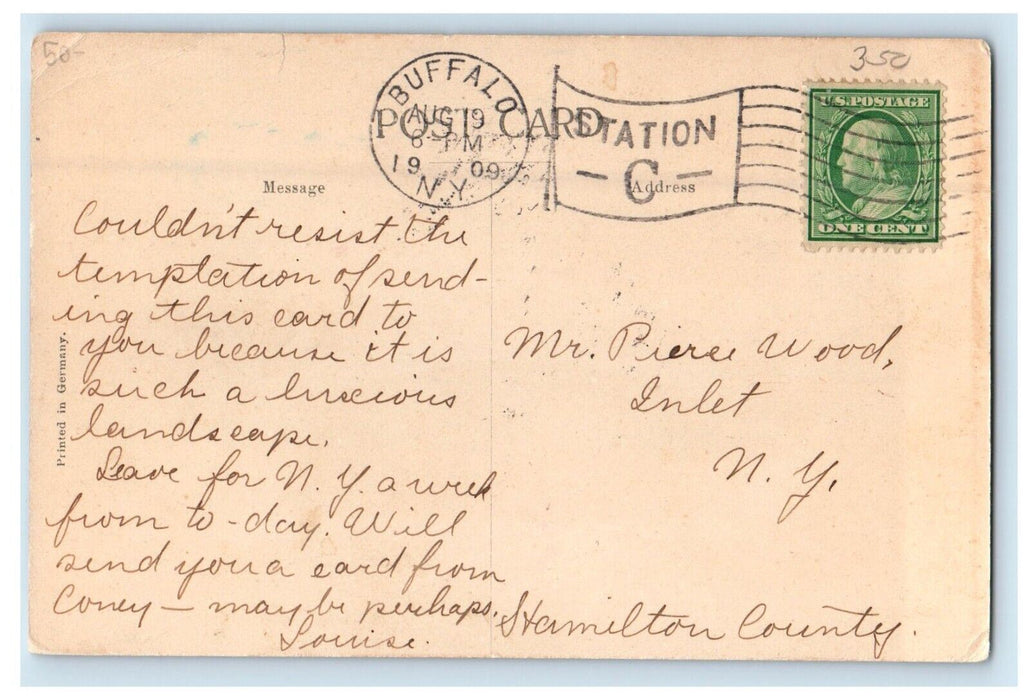 50-
350
BUFFALO
AUG 19
8 PM
1909
N.Y.
STATION
C
U.S. POSTAGE
ONE CENT
POST CARD
Message
Address
Couldn't resist the
temptation of send-
ing this card to
you because it is
such a luscious
landscape.
Leave for N. Y. a week
from to-day. Will
send you a card from
Coney — may be perhaps.
Louise.
Printed in Germany.
Mr. Pierce Wood,
Inlet
N. Y.
Hamilton County.